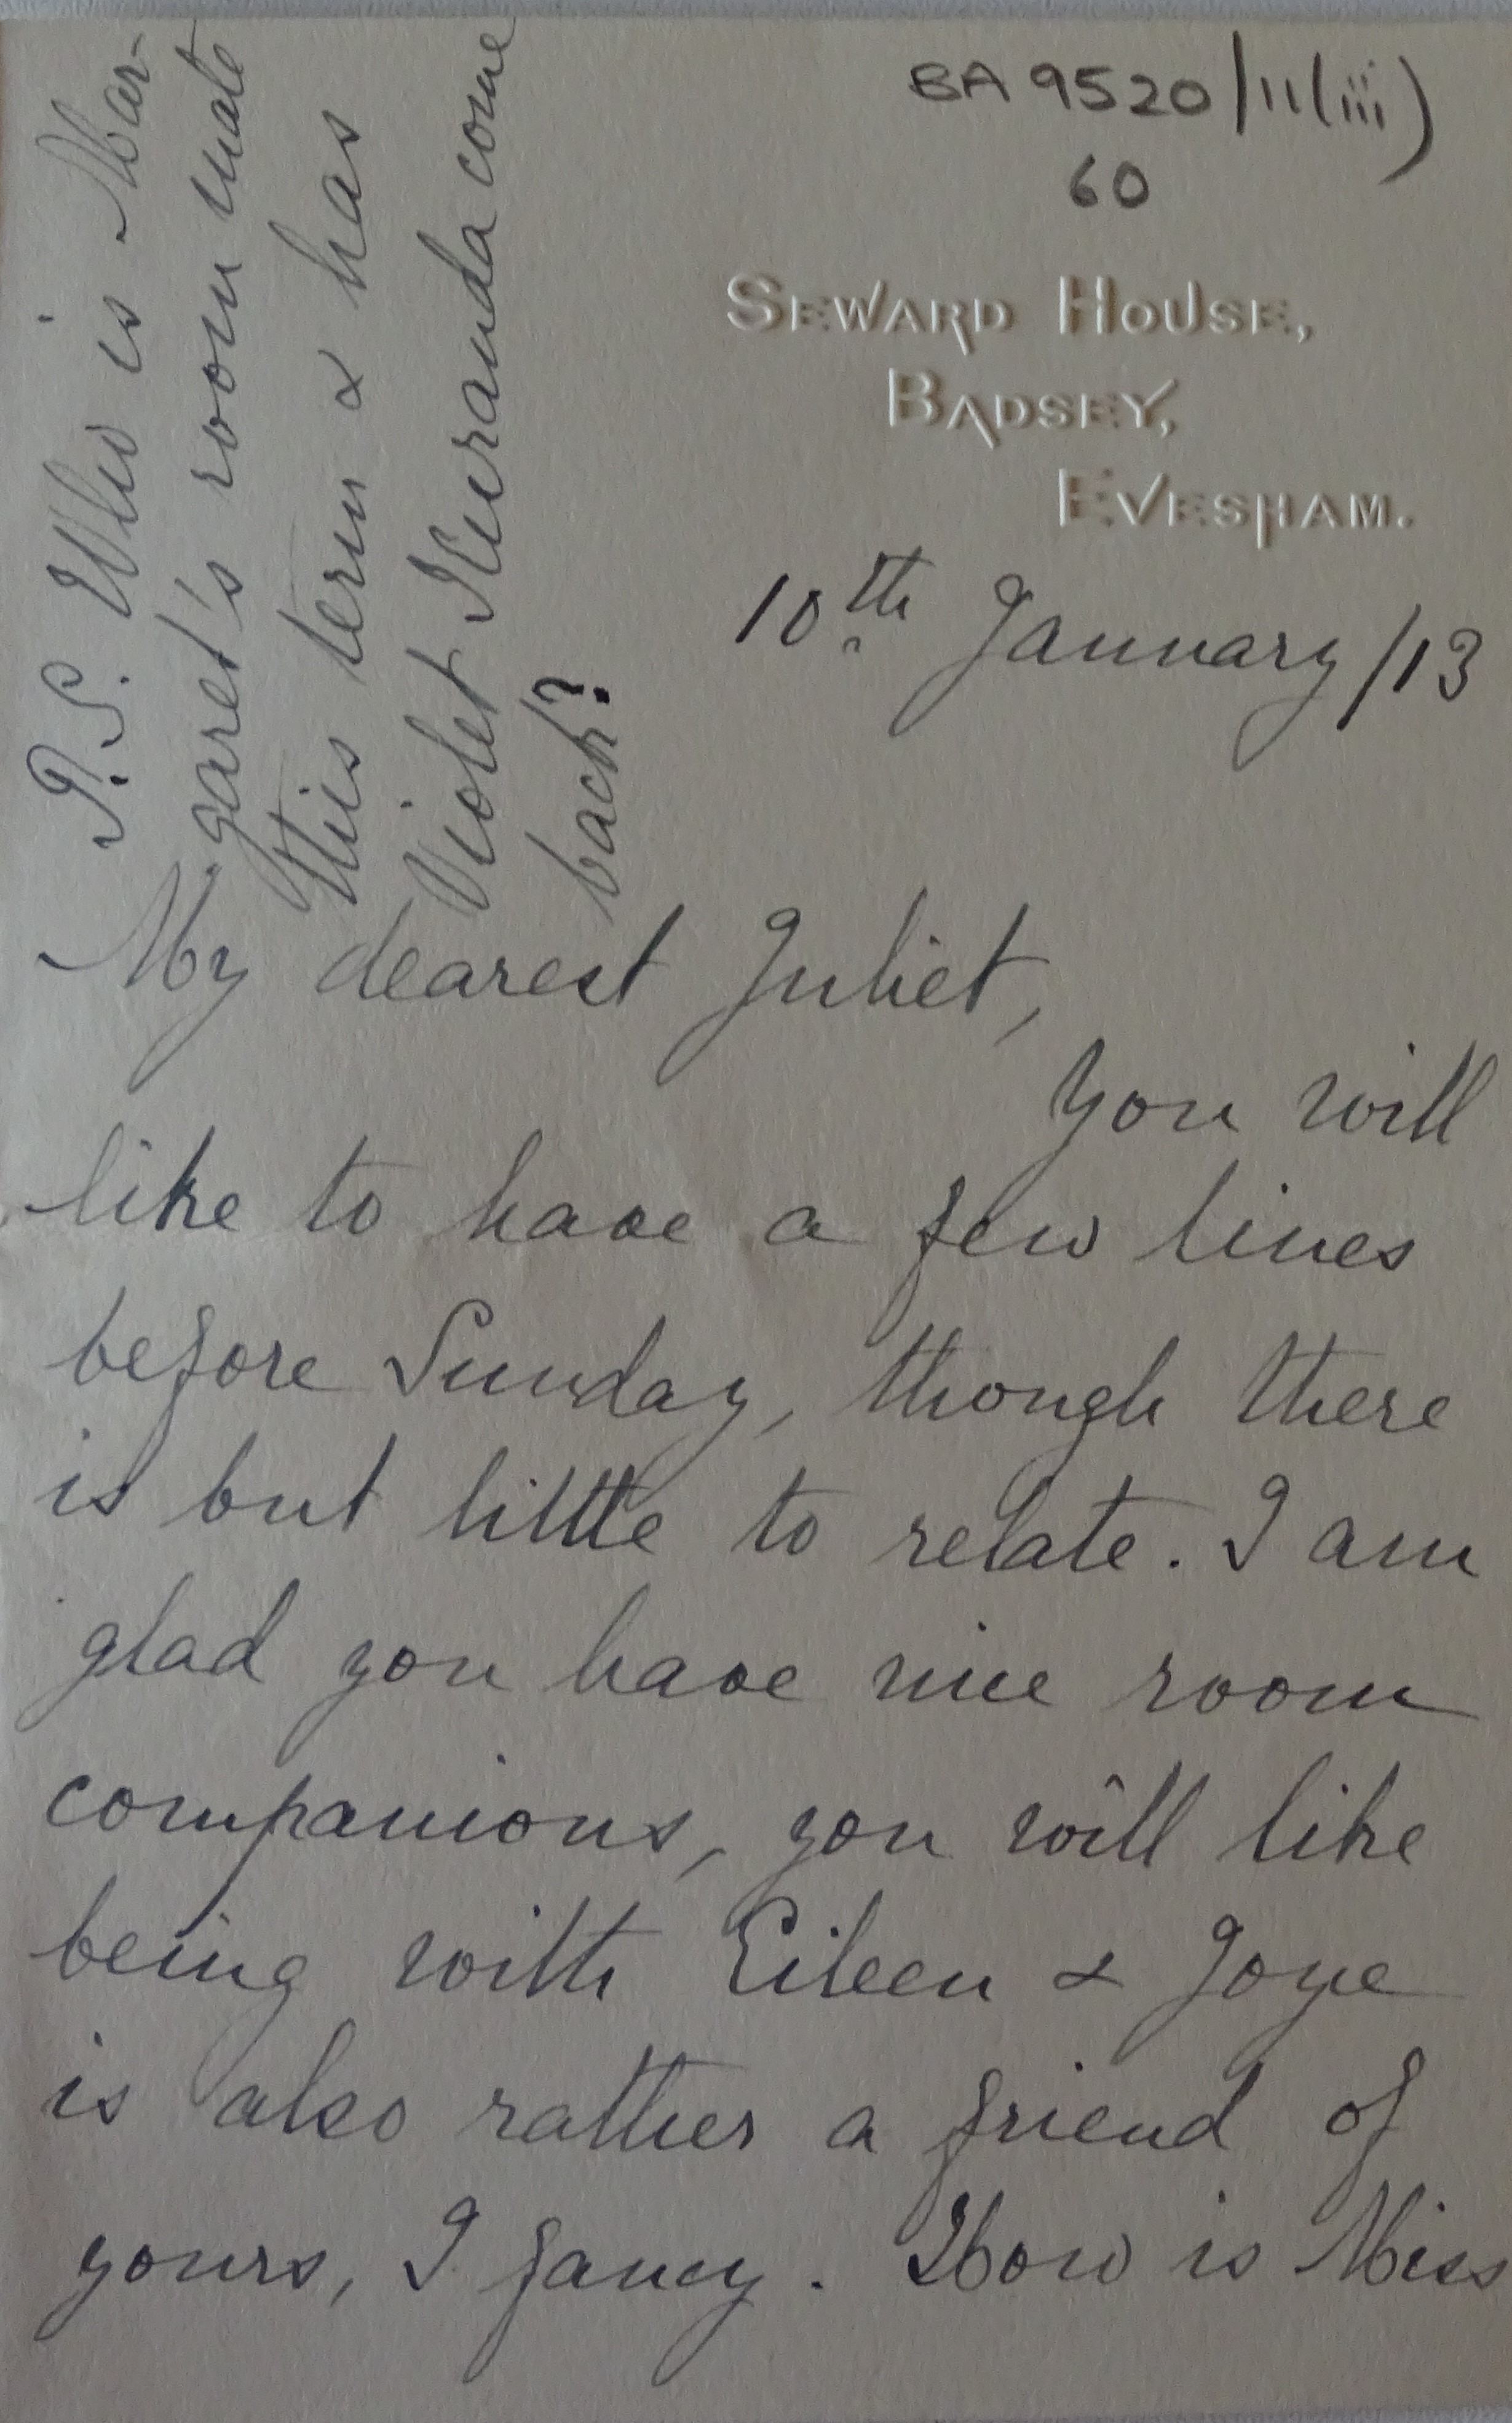 BA 9520/11(iii)
60
SEWARD HOUSE,
BADSEY,
EVESHAM.
10th January/13
P.S. Who is Mar-
garet's room mate
this term & has
Violet Kuranda come
back?
My dearest Juliet,
You will
like to have a few lines
before Sunday, though there
is but little to relate. I am
glad you have nice room
companions, you will like
being with Eileen & Joye
is also rather a friend of
yours, I fancy. How is Miss